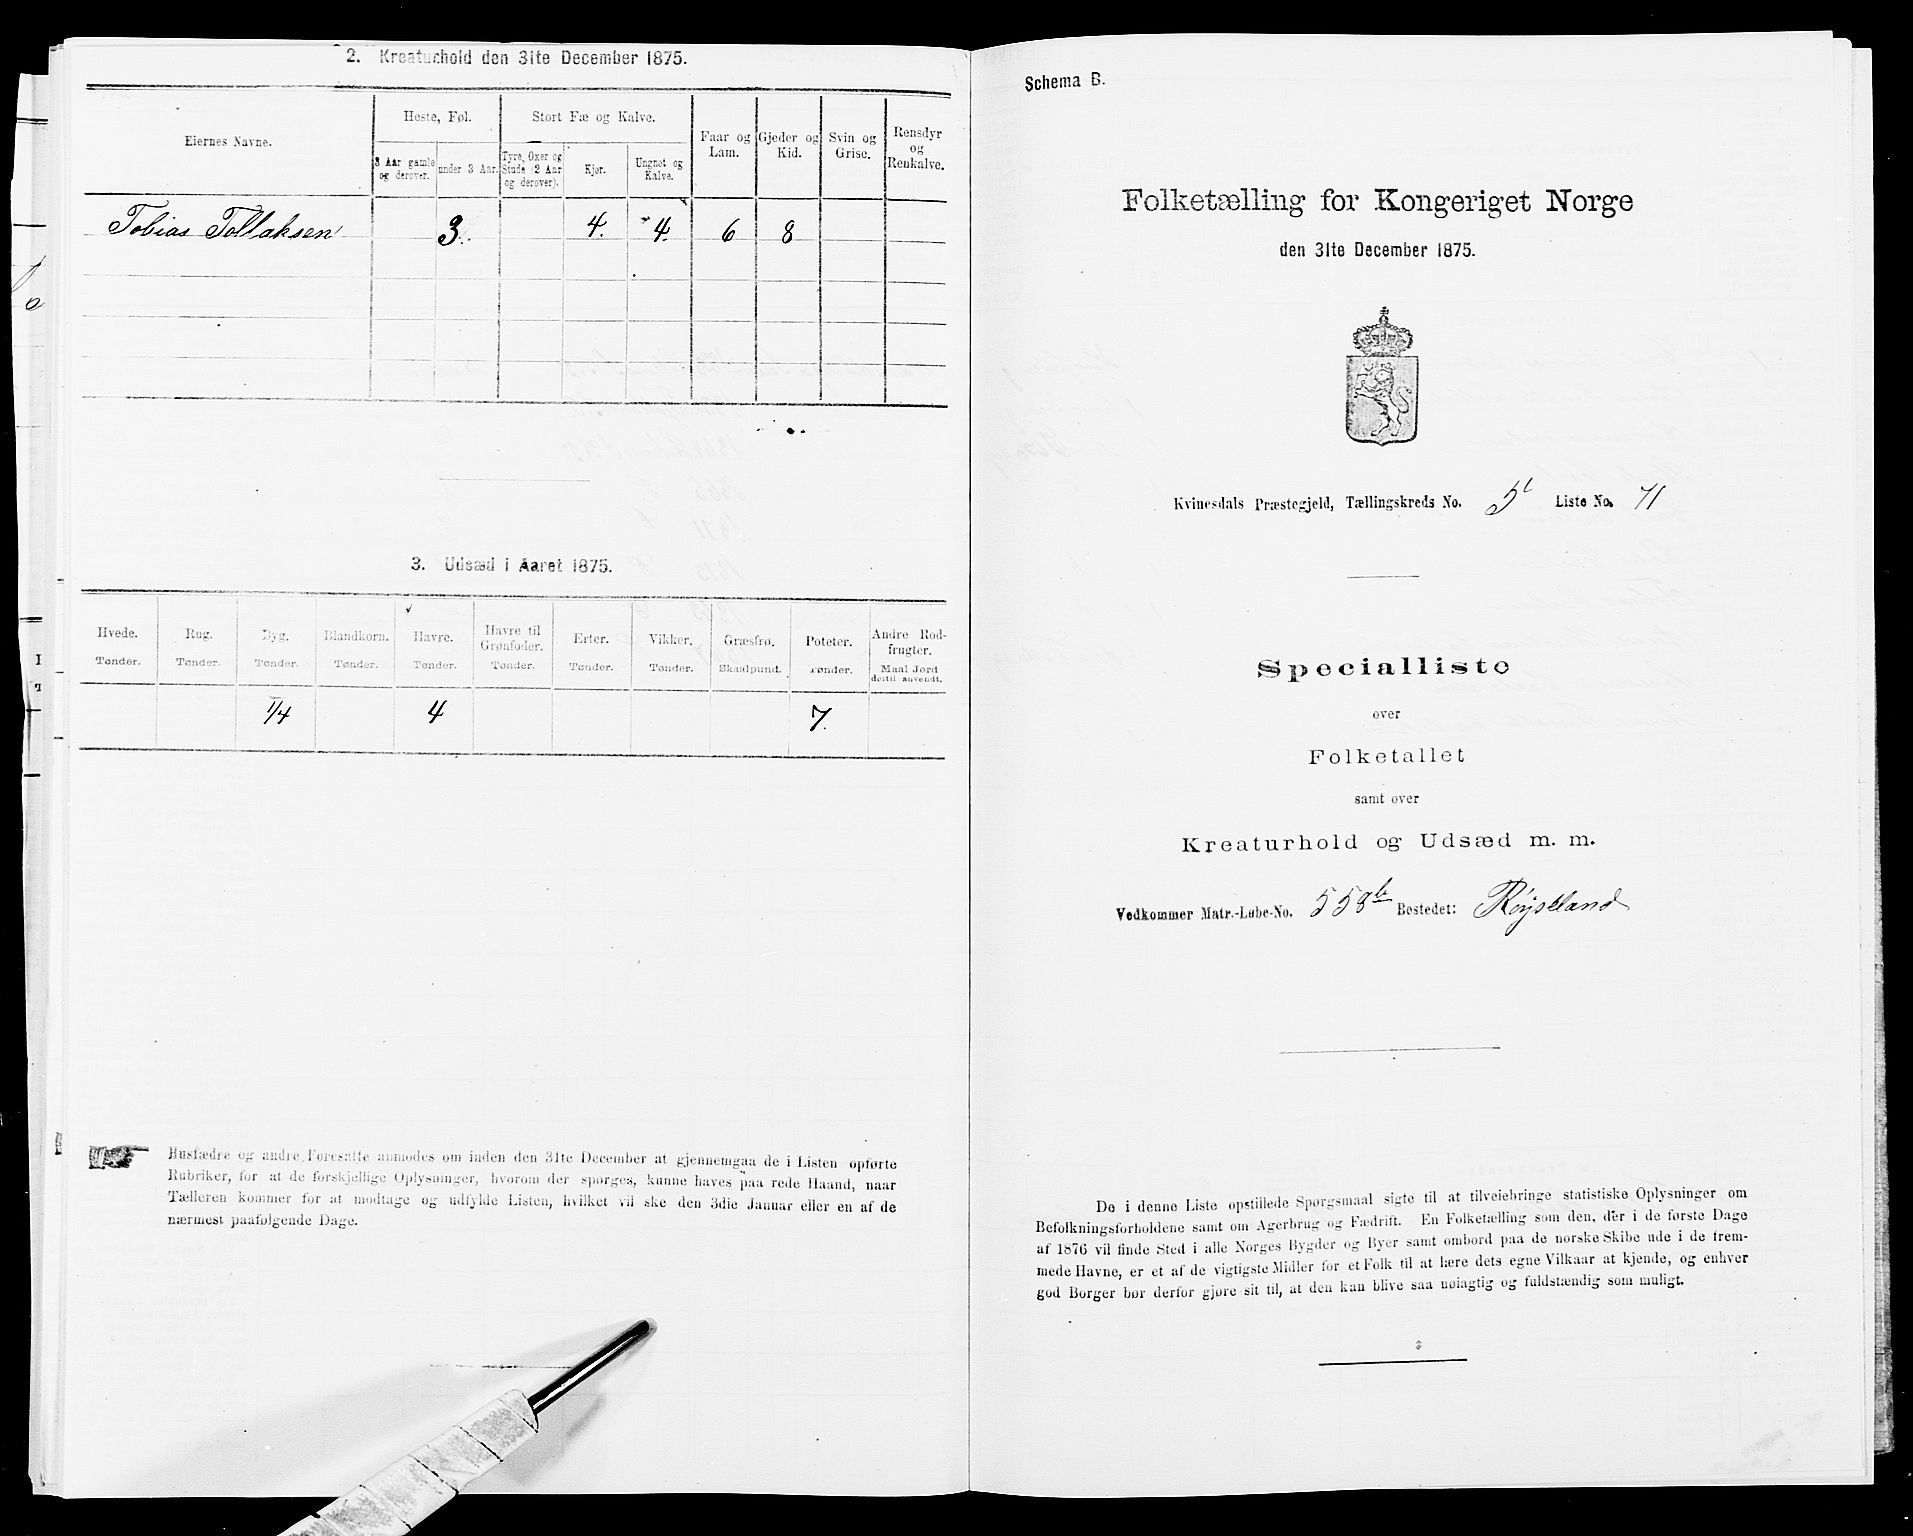 2. Kreaturhold den 31te December 1875.
Eiernes Navne.
Heste, Føl.
Stort Fæ og Kalve.
3 Aar gamle og derover.
under 3 Aar.
Tyre, Oxer og Stude (2 Aar og derover).
Kjør.
Ungnøt og Kalve.
Faar og Lam.
Gjeder og Kid.
Svin og Grise.
Rensdyr og Renkalve.
Tobias Tollaksen 3. 4. 4. 6 8
3. Udsæd i Aaret 1875.
Hvede. Rug. Byg. Blandkorn. Havre. Havre til Grønfoder. Erter. Vikker. Græsfrø. Poteter. Andre Rodfrugter.
Tønder. Tønder. Tønder. Tønder. Tønder. Tønder. Tønder. Tønder. Skaalpund. Tønder. Maal Jord dertil anvendt.
1/4 4 7.
Husfædre og andre Foresatte anmodes om inden den 31te December at gjennemgaa de i Listen opførte
Rubriker, for at de forskjellige Oplysninger, hvorom der spørges, kunne haves paa rede Haand, naar
Tælleren kommer for at modtage og udfylde Listen, hvilket vil ske den 3die Januar eller en af de
nærmest paafølgende Dage.
Schema B.
Folketælling for Kongeriget Norge
den 31te December 1875.
Kvinesdals Præstegjeld, Tællingskreds No. 5 Liste No. 71
Specialliste
over
Folketallet
samt over
Kreaturhold og Udsæd m. m.
Vedkommer Matr.-Løbe-No. 558b Bostedet: Røjseland
De i denne Liste opstillede Spørgsmaal sigte til at tilveiebringe statistiske Oplysninger om
Befolkningsforholdene samt om Agerbrug og Fædrift. En Folketælling som den, der i de første Dage
af 1876 vil finde Sted i alle Norges Bygder og Byer samt ombord paa de norske Skibe ude i de frem-
mede Havne, er et af de vigtigste Midler for et Folk til at lære dets egne Vilkaar at kjende, og enhver
god Borger bør derfor gjøre sit til, at den kan blive saa nøiagtig og fuldstændig som muligt.